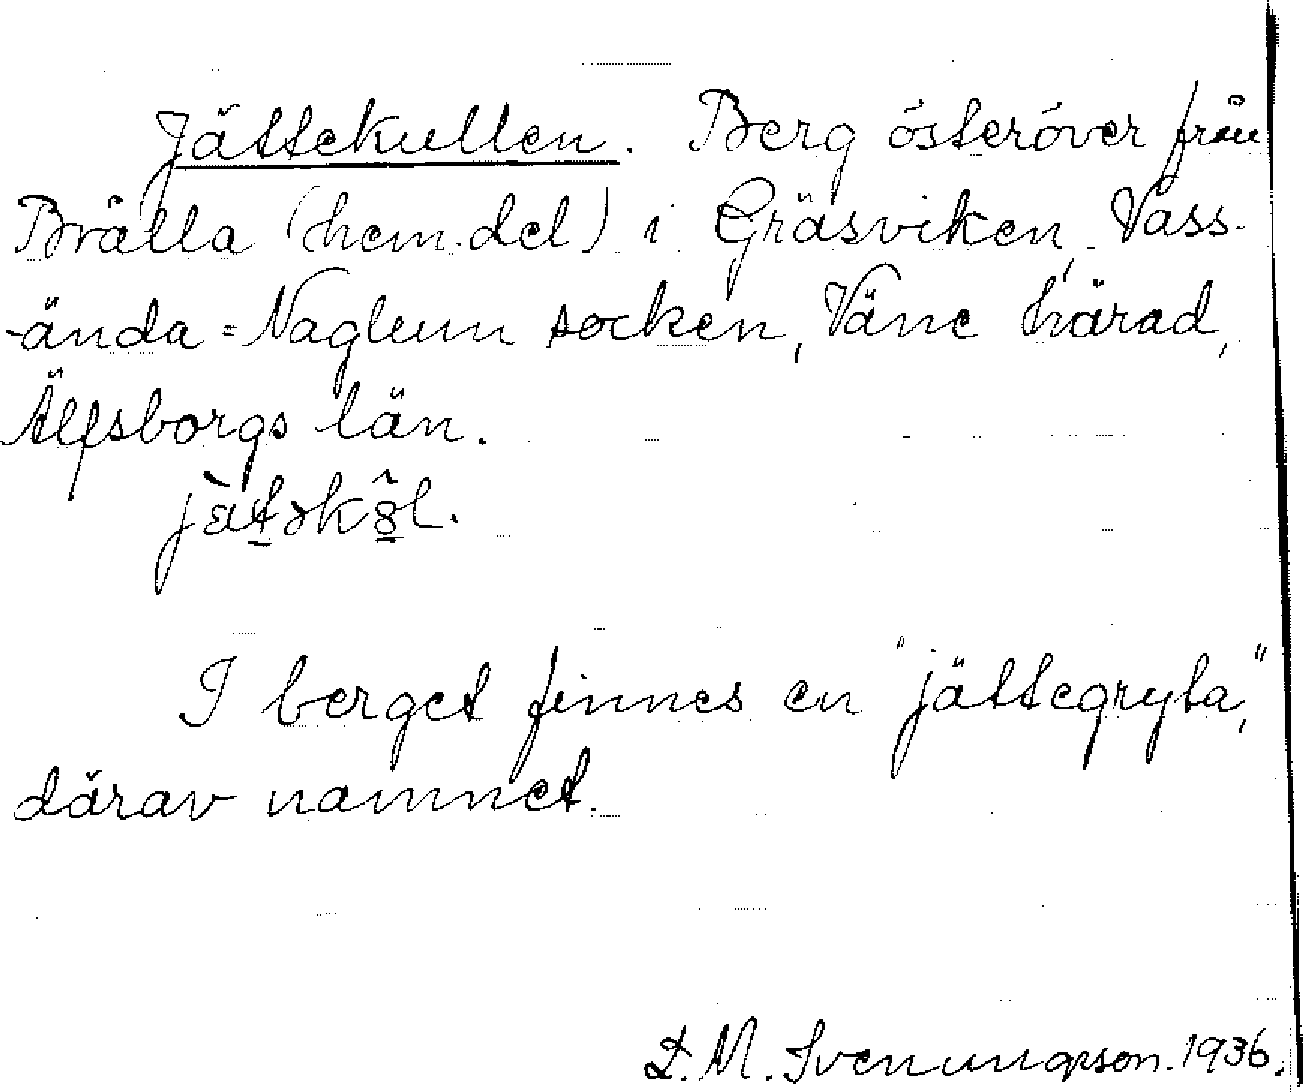 Jättekullen. Berg österöver från
Brätta (hem.del) i Gräsviken, Vass-
-ända=Naglum socken, Väne härad,
Älfsborgs län.
I berget finnes en "jättegryta,"
därav namnet.
D. M. Svenungsson. 1936.